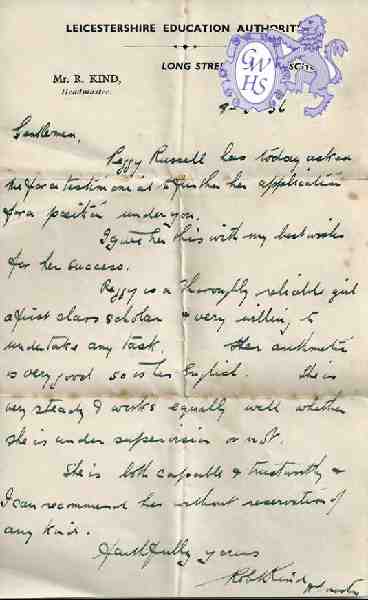 LEICESTERSHIRE EDUCATION AUTHORIT
LONG STRE
Mr. R. KIND,
Headmaster.
GWHS
36
Gentlemen,
Peggy Russell has today asked
me for a testimonial to further her application
for a position under you.
I give her this with my best wishes
for her success.
Peggy is a thoroughly reliable girl
a first class scholar & very willing to
undertake any task. Her arithmetic
is very good so is her English. She is
very steady & works equally well whether
she is under supervision or not.
She is both capable & trustworthy &
I can recommend her without reservation of
any kind.
Faithfully yours
Robt Kind